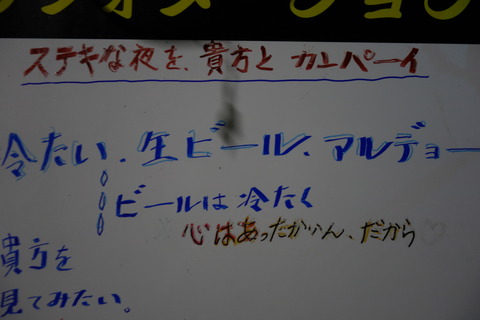 ンフォメーション
ステキな夜を、貴方と カンパーイ
冷たい、生ビール、アルデョー
ビールは冷たく
心はあったかいん、だから
貴方を
見てみたい。